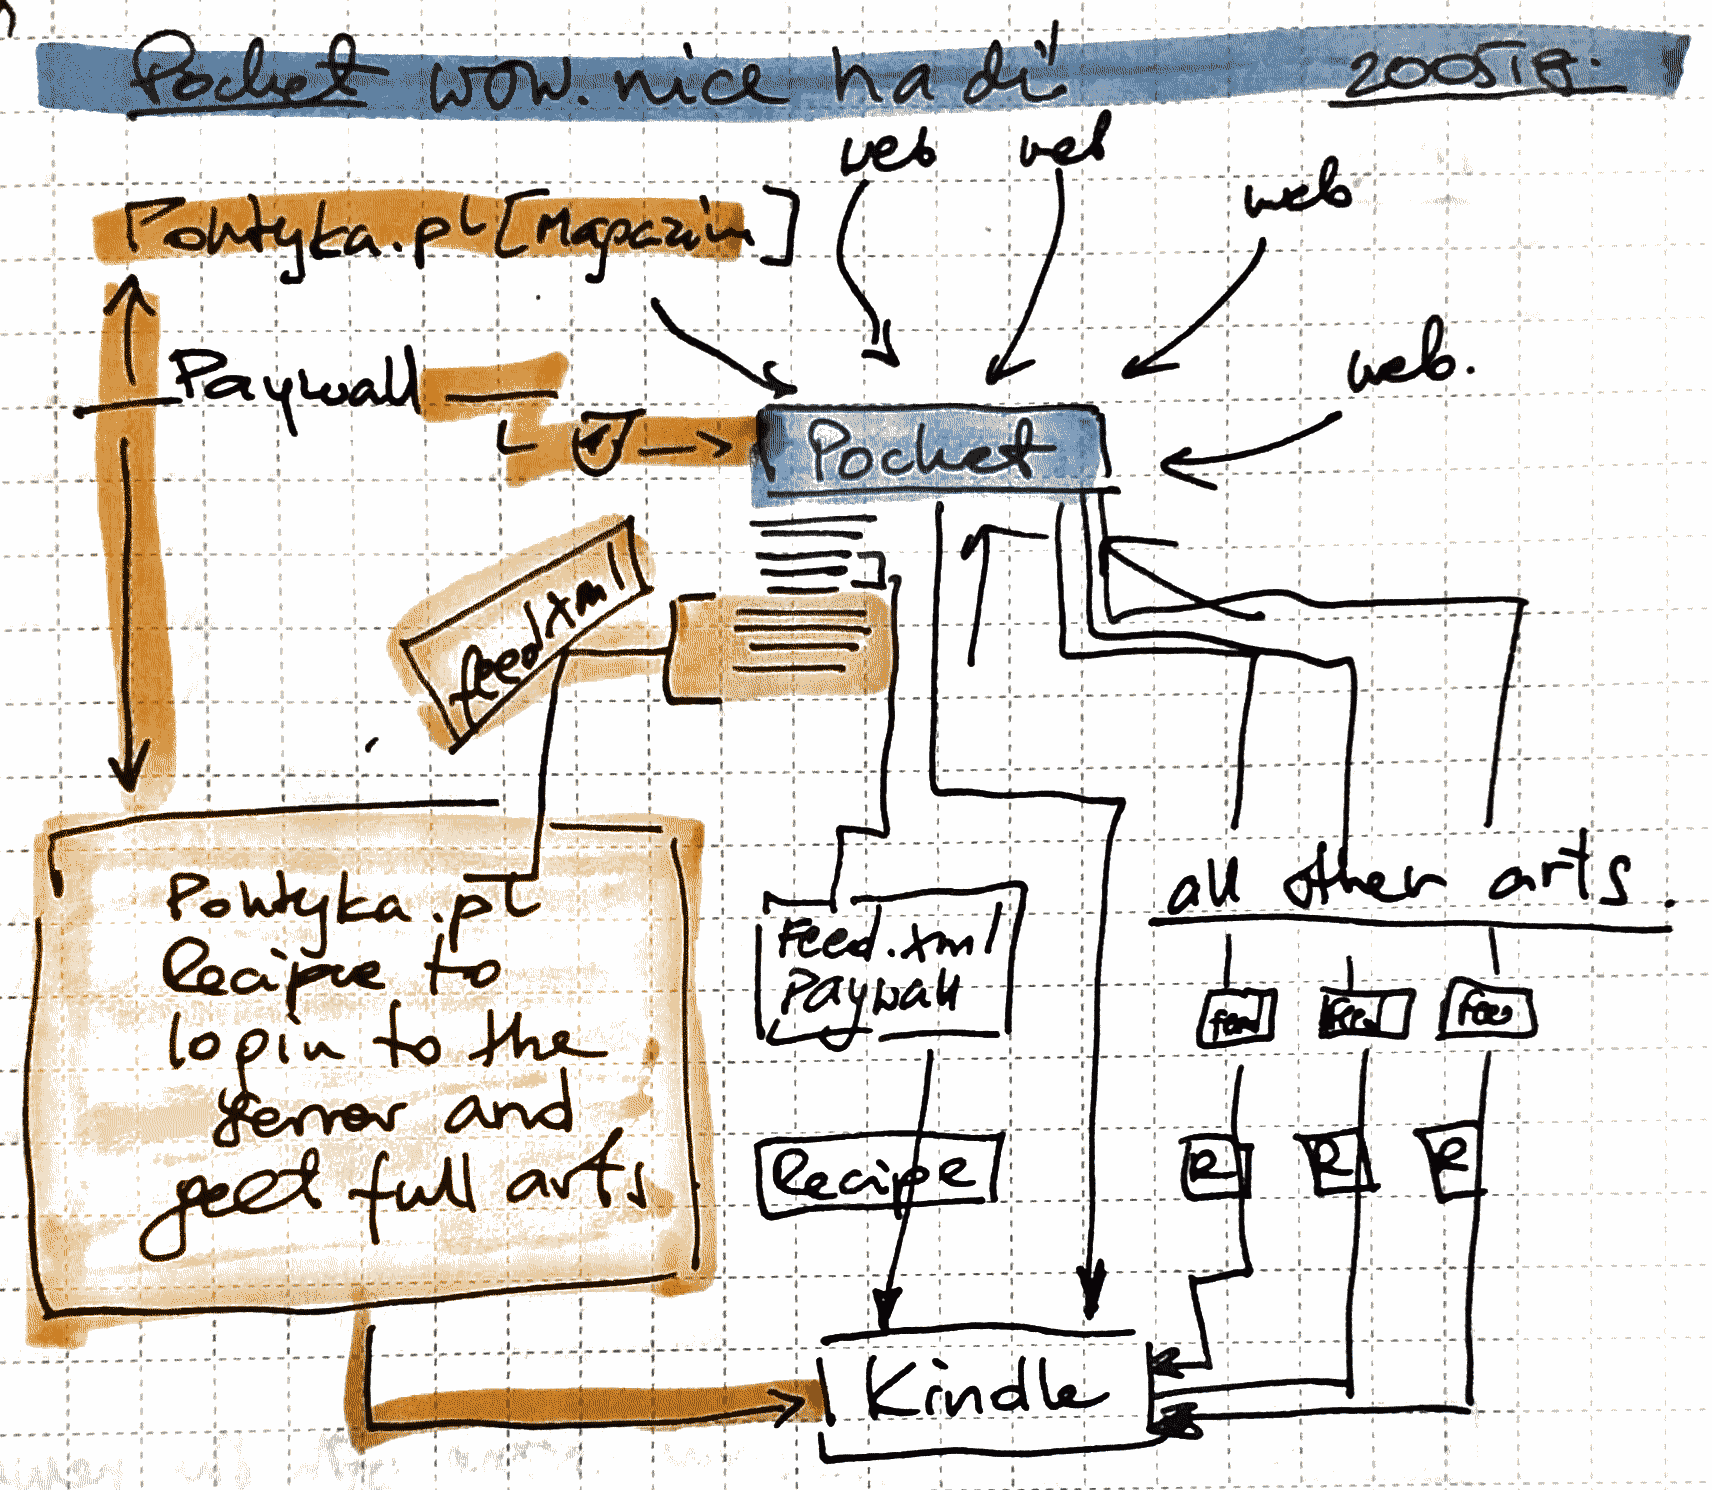 Pocket wow. nice ha di! 200519.
web web
web
Polityka.pl [Magazin]
web.
Paywall
Pocket
feed.xml
all other arts.
Polityka.pl
Recipie to
login to the
and
geet full arts.
Feed.xml
Paywall
feed
feed
feed
Recipe
R
R
R
Kindle